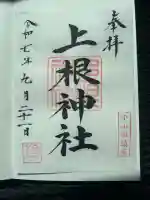 奉拝
上根神社
令和七年九月二十一日